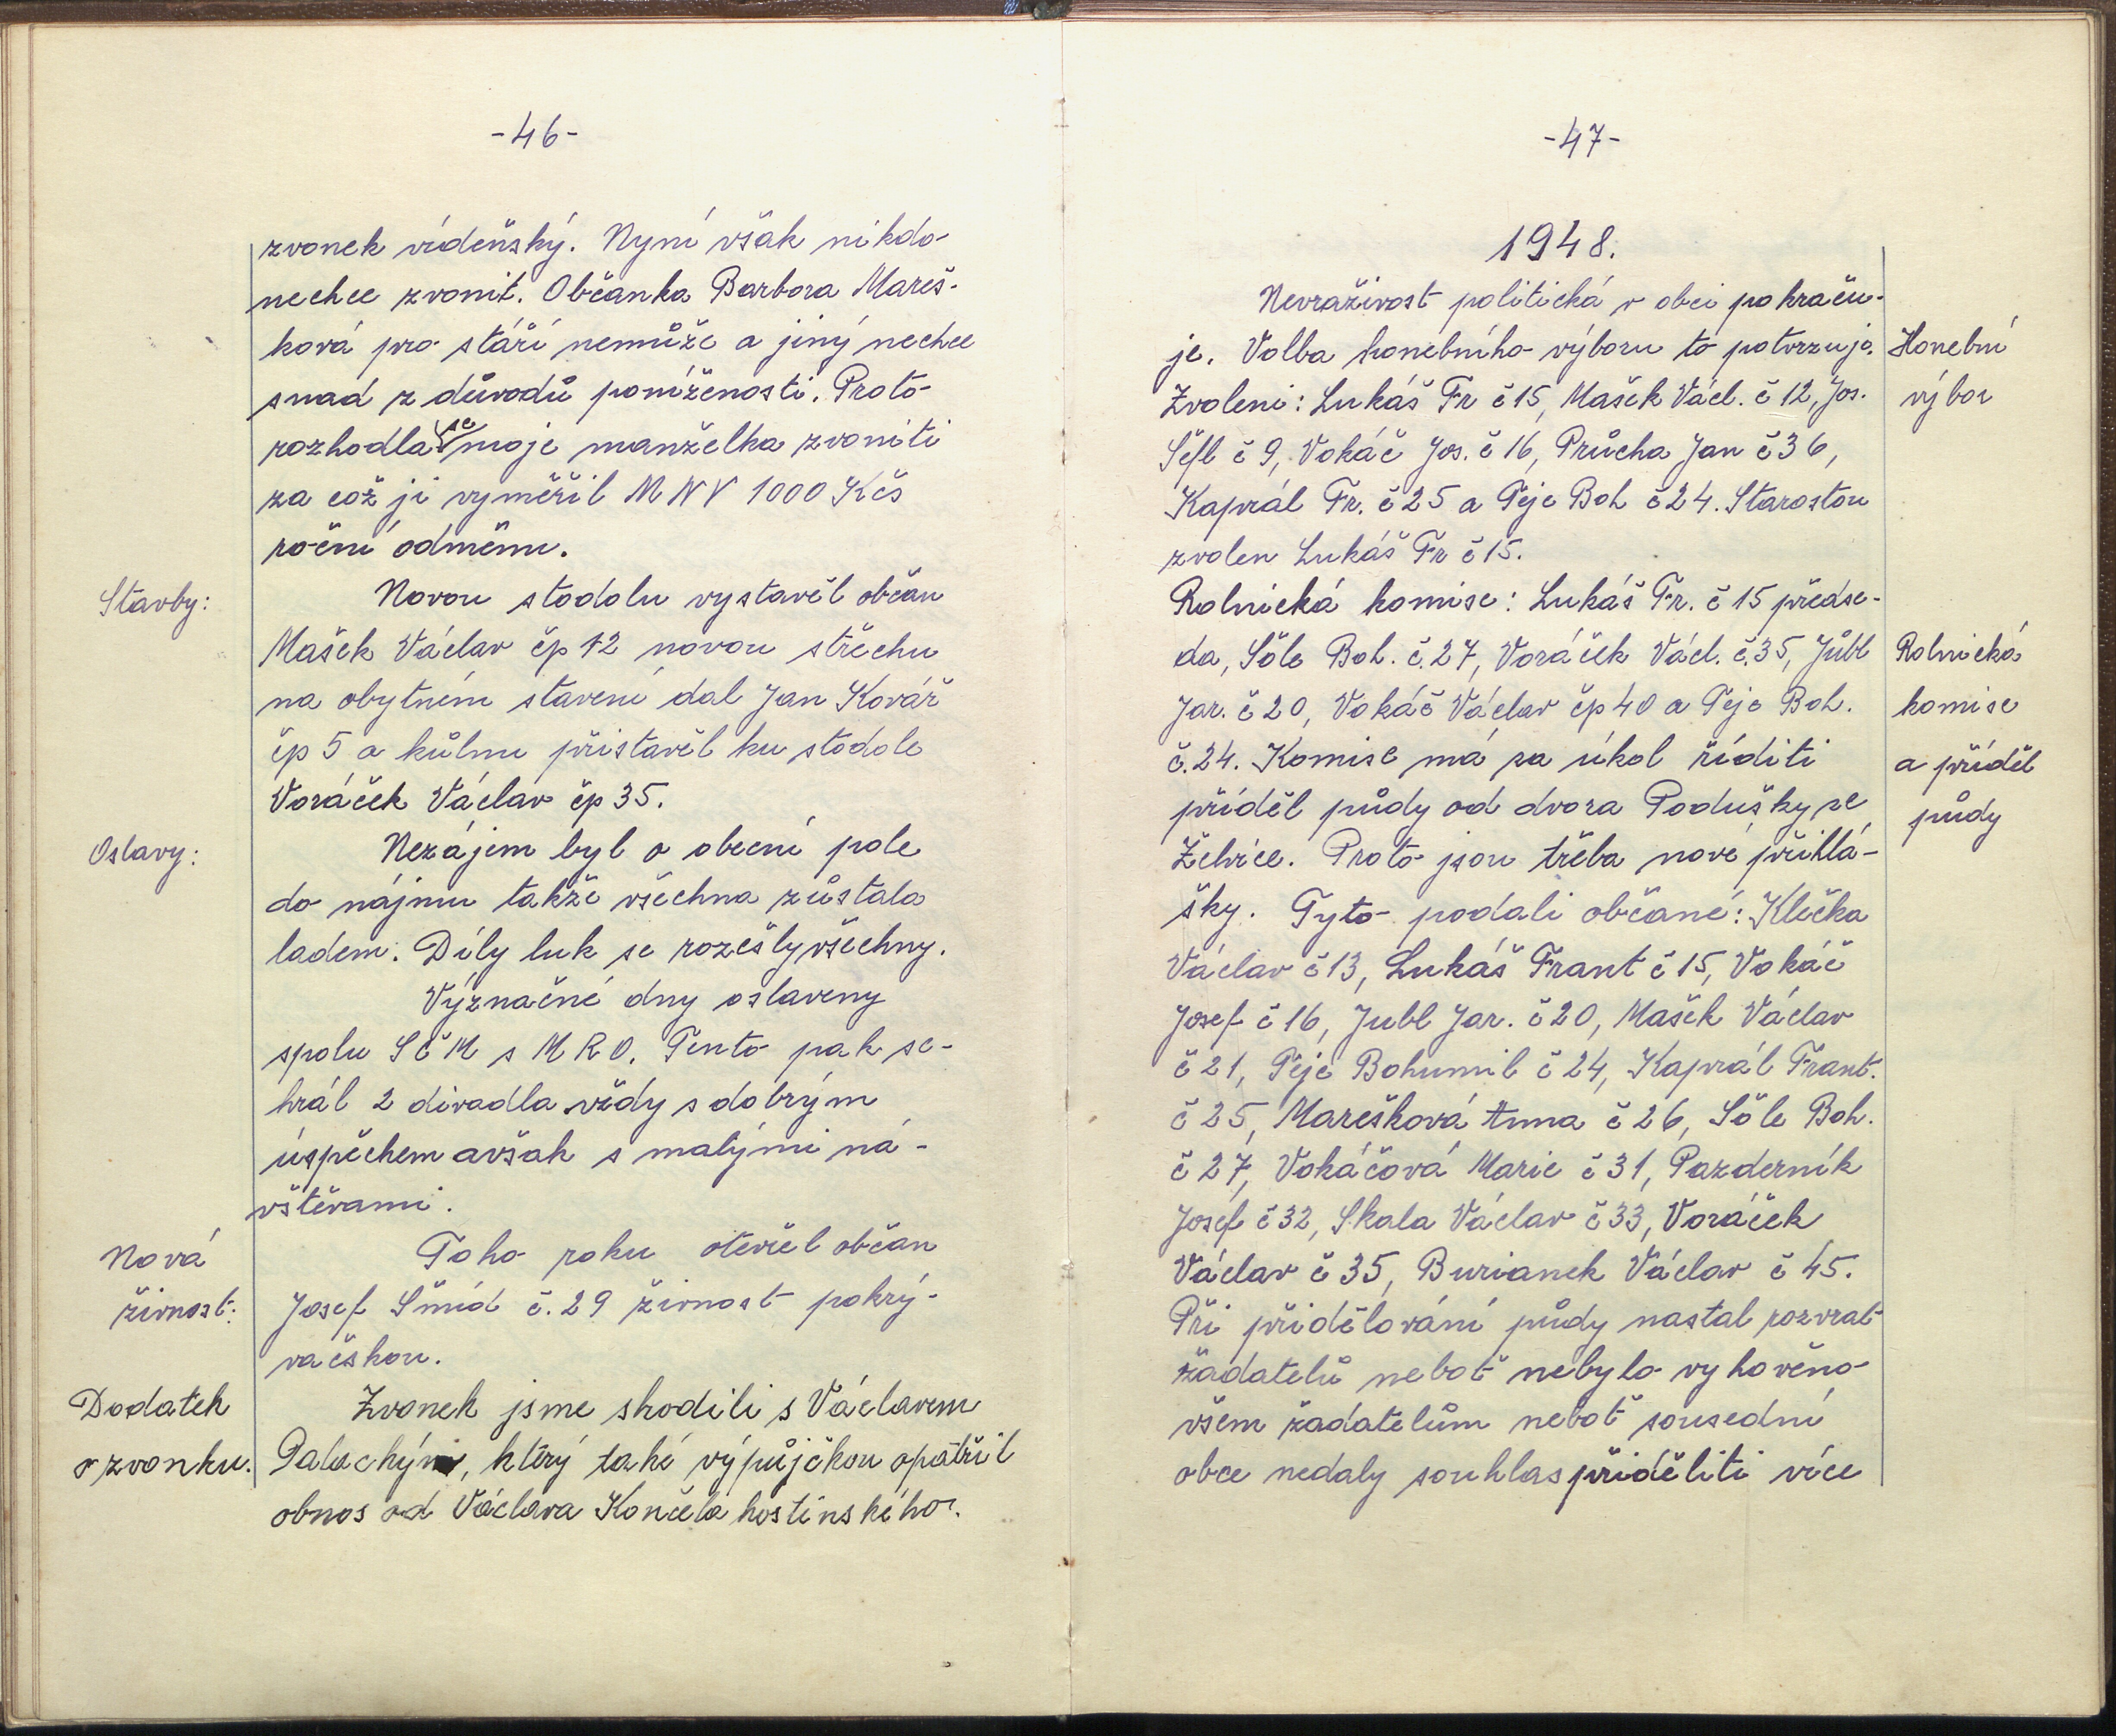 -46-
zvonek vídeňský. Nyní však nikdo
nechce zvonit. Občanka Barbora Mareš-
ková pro stáří nemůže a jiný nechce
snad z důvodů poníženosti. Proto
rozhodla se moje manželka zvoniti
za což ji vyměřil MNV 1000 Kčs
roční odměnu.
Stavby:
Novou stodolu vystavěl občan
Mašek Václav čp 12 novou střechu
na obytném stavení dal Jan Kovář
čp 5 a kůlnu přistavěl ku stodole
Voráček Václav čp 35.
Oslavy:
Nezájem byl o obecní pole
do nájmu takže všechna zůstala
ladem. Díly luk se rozešly všechny.
Význačné dny oslaveny
spolu SČM s MRO. Tento pak se-
hrál 2 divadla vždy s dobrým
úspěchem avšak s malými ná-
vštěvami.
Nová
živnost:
Toho roku otevřel občan
Josef Šmíd č. 29 živnost pokrý-
vačskou.
Dodatek
o zvonku.
Zvonek jsme shodili s Václavem
Palachým, který také výpůjčkou opatřil
obnos od Václava Končela hostinského.
-47-
1948.
Nevraživost politická v obci pokraču-
je. Volba honebního výboru to potvrzuje.
Honební
výbor
Zvoleni: Lukáš Fr č 15, Mašek Václ. č 12, Jos.
Šefl č 9, Vokáč Jos. č 16, Průcha Jan č 36,
Kaprál Fr. č 25 a Peje Boh č 24. Starostou
zvolen Lukáš Fr č 15.
Rolnická komise: Lukáš Fr. č 15 předse-
da, Šôle Boh. č. 27, Voráček Václ. č. 35, Jůbl
Jar. č 20, Vokáč Václav čp 40 a Peje Boh.
č. 24. Komise má za úkol říditi
příděl půdy od dvora Podušky ze
Rolnická
komise
a příděl
půdy
Želvice. Proto jsou třeba nové přihlá-
šky. Tyto podali občané: Klečka
Václav č 13, Lukáš Frant č 15, Vokáč
Josef č 16, Jubl Jar. č 20, Mašek Václav
č 21, Peje Bohumil č 24, Kaprál Frant.
č 25, Marešková Anna č 26, Šôle Boh.
č 27, Vokáčová Marie č 31, Pazderník
Josef č 32, Skala Václav č 33, Voráček
Václav č 35, Burianek Václav č 45.
Při přidělování půdy nastal rozvrat
žadatelů neboť nebylo vyhověno
všem žadatelům neboť sousední
obce nedaly souhlas přiděliti více